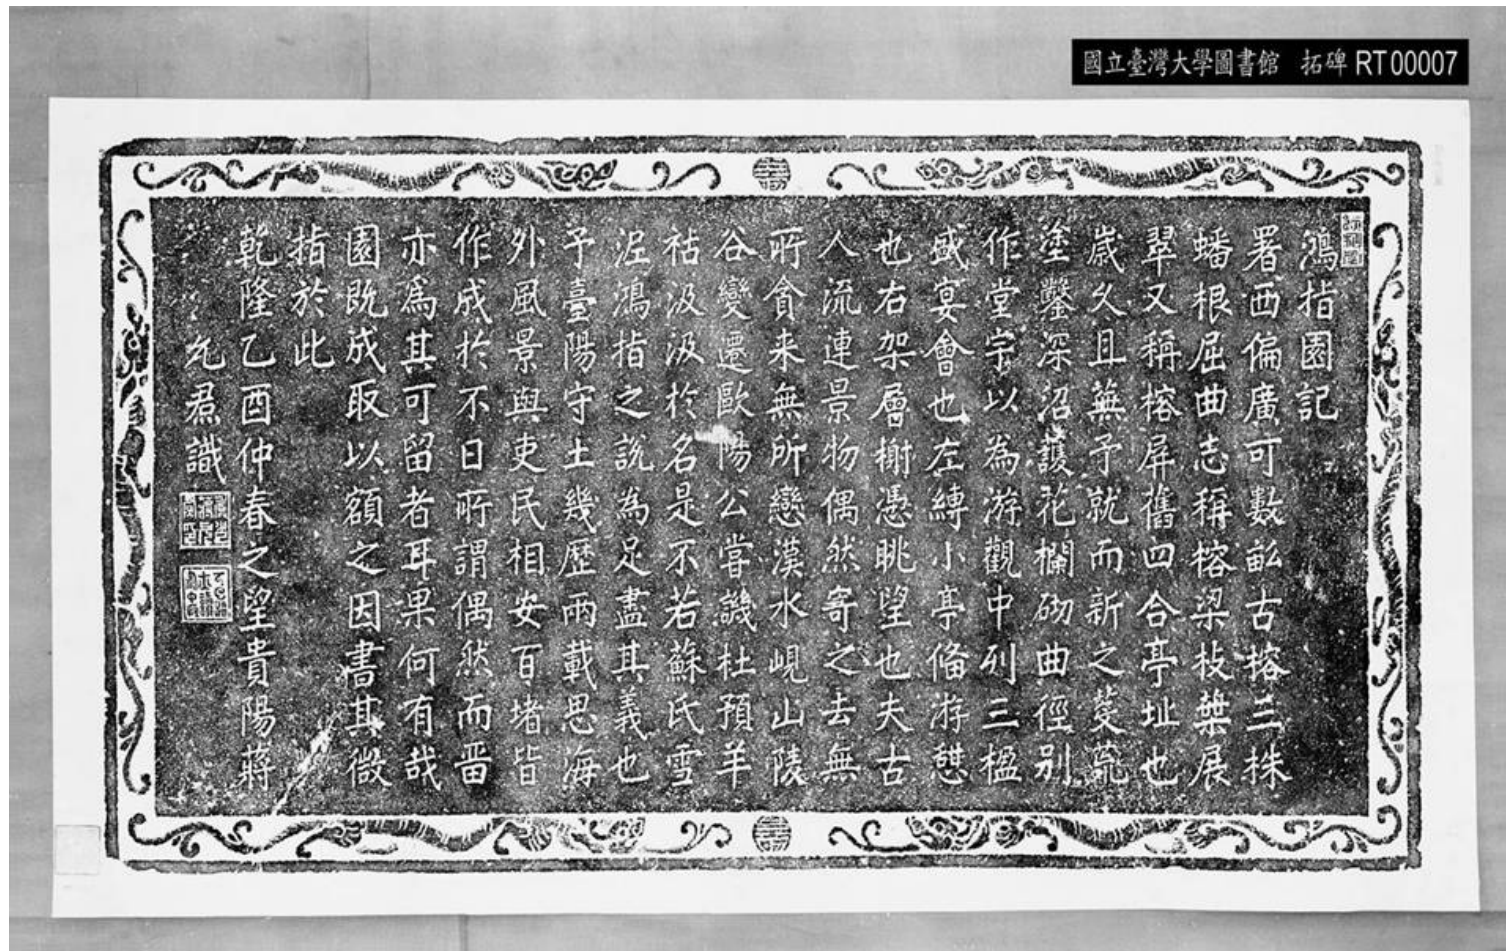 國立臺灣大學圖書館 拓碑 RT00007
鴻指園記
署西偏廣可數畝古榕三株
蟠根屈曲志稱榕梁枝葉展
翠又稱榕屏舊四合亭址也
歲久且蕪予就而新之芟荒
塗鑿深沼護花欄砌曲徑別
作堂宇以為游觀中列三楹
盛宴會也左縛小亭偹游憇
也右架層榭憑眺望也夫古
人流連景物偶然寄之去無
所貪来無所戀漢水峴山陵
谷變遷歐陽公嘗譏杜預羊
祜汲汲於名是不若蘇氏雪
泥鴻指之說為足盡其義也
予臺陽守土幾歷兩載思海
外風景與吏民相安百堵皆
作成於不日所謂偶然而畱
亦爲其可留者耳果何有哉
園既成取以額之因書其微
指於此
乾隆乙酉仲春之望貴陽蔣
允焄識